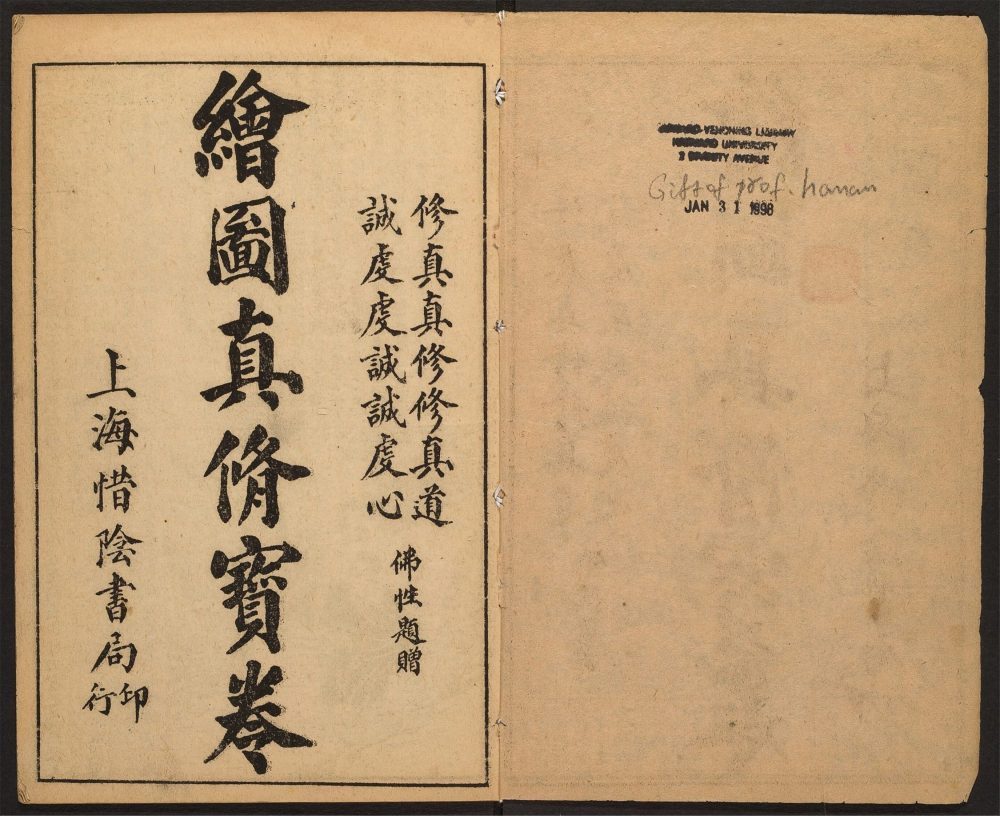 HARVARD-YENCHING LIBRARY
HARVARD UNIVERSITY
2 DIVINITY AVENUE
Gift of prof. hanan
JAN 31 1998
修真真修修真道
誠虔虔誠誠虔心
佛性題贈
繪圖真脩寶卷
上海惜陰書局印行